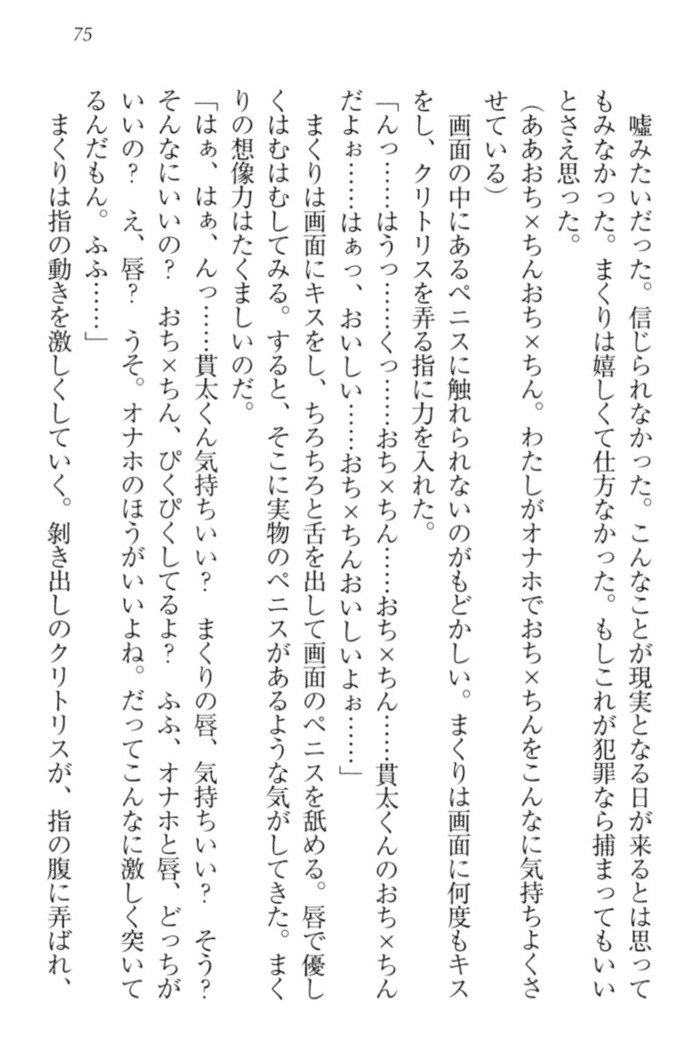 75
嘘みたいだった。信じられなかった。こんなことが現実となる日が来るとは思って
もみなかった。まくりは嬉しくて仕方なかった。もしこれが犯罪なら捕まってもいい
とさえ思った。
(ああおち×ちんおち×ちん。わたしがオナホでおち×ちんをこんなに気持ちよくさ
せている)
画面の中にあるペニスに触れられないのがもどかしい。まくりは画面に何度もキス
をし、クリトリスを弄る指に力を入れた。
「んっ……はうっ……くっ……おち×ちん……おち×ちん……貫太くんのおち×ちん
だよぉ……はぁっ、おいしい……おち×ちんおいしいよぉ……」
まくりは画面にキスをし、ちろちろと舌を出して画面のペニスを舐める。唇で優し
くはむはむしてみる。すると、そこに実物のペニスがあるような気がしてきた。まく
りの想像力はたくましいのだ。
「はぁ、はぁ、んっ……貫太くん気持ちいい?　まくりの唇、気持ちいい?　そう?
そんなにいいの?　おち×ちん、ぴくぴくしてるよ?　ふふ、オナホと唇、どっちが
いいの?　え、唇?　うそ。オナホのほうがいいよね。だってこんなに激しく突いて
るんだもん。ふふ……」
まくりは指の動きを激しくしていく。剝き出しのクリトリスが、指の腹に弄ばれ、